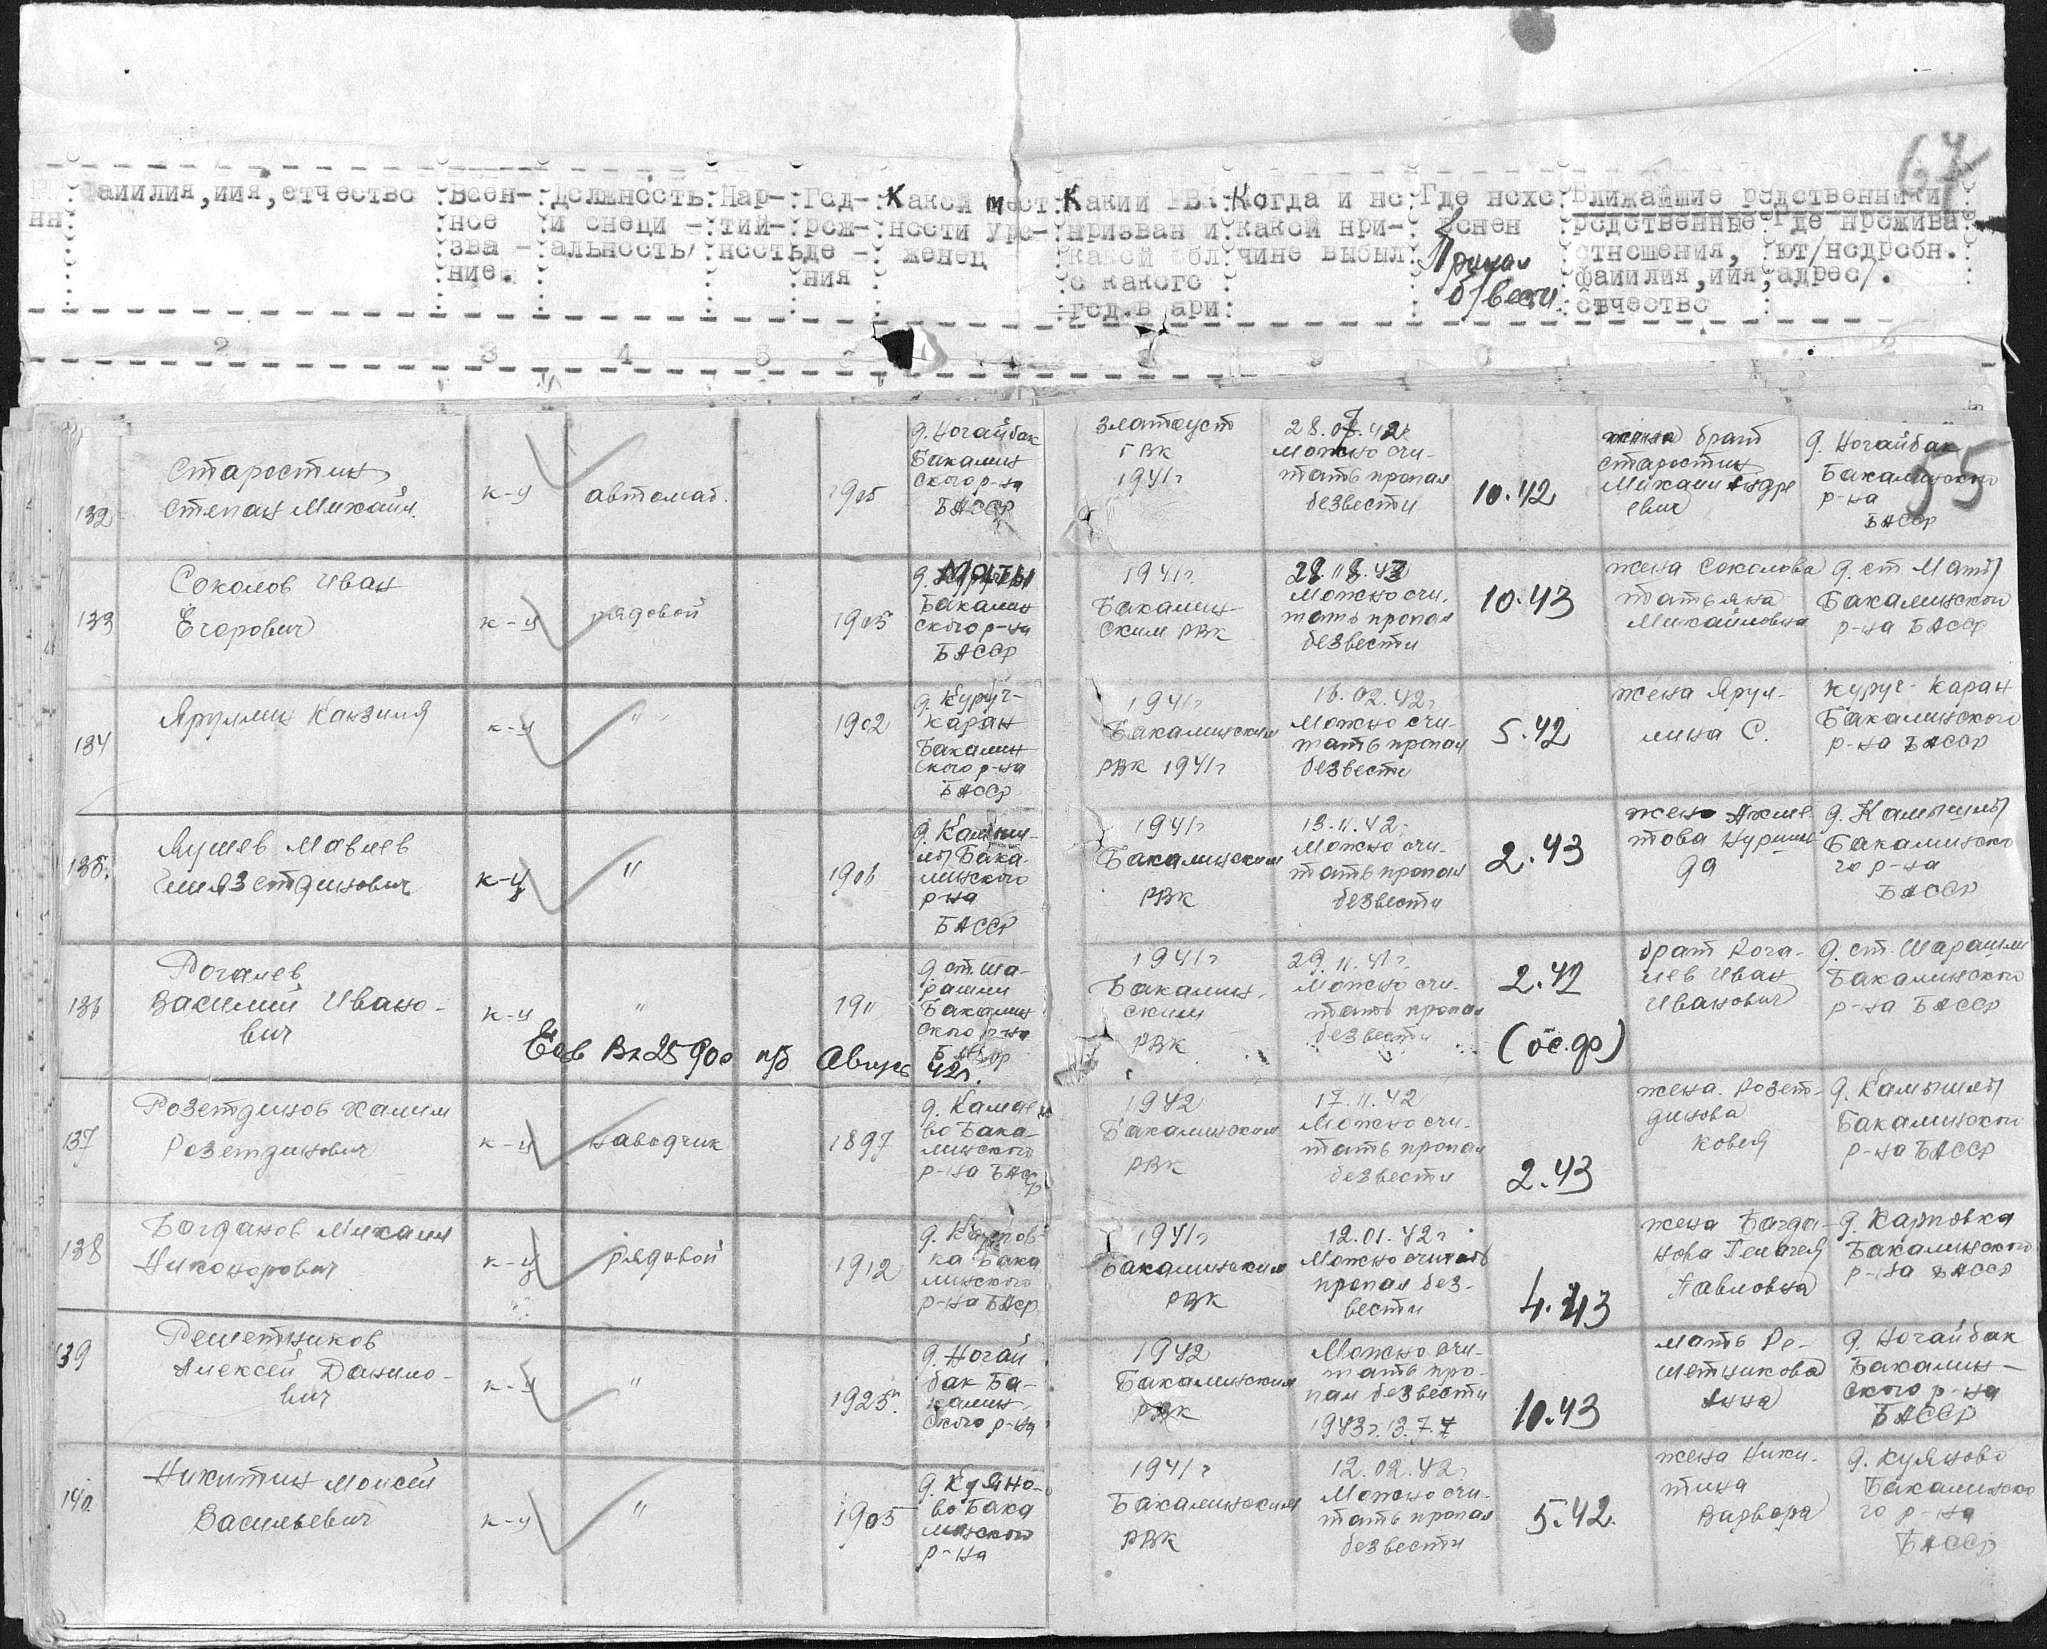 67
Фамилия, имя, отчество
Воен-
ное
зва -
ние.
Должность
и специ -
альность/
Пар-
тий-
ность
Год-
рож-
де -
ния
Какой мест
ности уро-
женец
Каким РВК
призван и
какой обл
с какого
год. в арм
Когда и по
какой при-
чине выбыл
Где похо
ронен
Пропал
б/вести
Ближайшие родственники
родственные
отношения,
фамилия, имя,
отчество
Где прожива
ют/подробн.
адрес/.
2 3 4 5
55
132
Старостин
Степан Михайл.
к-ц
автомат.
1905
д. Ногайбак
Бакалин
ского р-на
БАССР
Златоуст
ГВК
1941г
Можно счи-
тать пропал
безвести
10.42
жена брат
Старостин
Михаил Андре
евич
д. Ногайбак
Бакалинского
р-на
БАССР
133
Соколов Иван
Егорович
к-ц
рядовой
1905
д. Маты
Бакалин
ского р-на
БАССР
1941г.
Бакалин
ским РВК
Можно счи.
тать пропал
безвести
10.43
жена Соколова
Татьяна
Михайловна
д. ст Маты
Бакалинского
р-на БАССР
134
Яруллин Канзиля
к-ц
"
1902
д. Куруч-
каран
Бакалин
ского р-на
БАССР
1941г
Бакалинским
РВК 1941г
16.02.42г
Можно счи-
тать пропал
безвести
5.42
жена Ярул-
лина С.
Куруч-Каран
Бакалинского
р-на БАССР
135.
Яушев Мавлев
Гиязетдинович
к-ц
"
1906
д. Камыш-
лы Бака-
линского
р-на
БАССР
1941г
Бакалинским
РВК
13.11.42г
Можно счи-
тать пропал
безвести
2.43
жена Ахме
това
д. Камышлы
Бакалинско
го р-на
БАССР
136
Рогалев
Василий Ивано-
вич
к-ц
"
1911
д. ст. Ша-
рашли
Бакалин
ского р-на
БАССР
1941г
Бакалин-
ским
РВК
29.11.41г.
Можно счи-
тать пропал
безвести
2.42
брат Рога-
лев Иван
Иванович
д. ст. Шарашли
Бакалинского
р-на БАССР
п/б
42г.
137
Розетдинов Халим
Розетдинович
к-ц
наводчик
1897
д. Камае
во Бака-
линского
р-на БАССР
1942
Бакалинским
РВК
17.11.42
Можно счи-
тать пропал
безвести
2.43
жена. Розет-
динова
д. Камышлы
Бакалинского
р-на БАССР
138
Богданов Михаил
Никонорович
к-ц
рядовой
1912
д. Карпов-
ка Бака
линского
р-на БАССР
1941г
Бакалинским
РВК
12.01.42г
Можно считать
пропал без-
вести
4.43
жена Богда-
нова Пелагея
Павловна
д. Карповка
Бакалинского
р-на БАССР
139
Решетников
Алексей Данило-
вич
к-ц
"
1925г.
д. Ногай
бак Ба-
калин-
ского р-на
1942
Бакалинским
РВК
Можно счи-
тать про-
пал безвести
10.43
мать Ре-
шетникова
Анна
д. Ногайбак
Бакалин-
ского р-на
БАССР
140.
Никитин Моисей
Васильевич
к-ц
"
1905
д. Куяно-
во Бака
линского
р-на
1941г
Бакалинским
РВК
12.02.42г
Можно счи-
тать пропал
безвести
5.42.
жена Ники-
тина
Варвара
д. Куяново
Бакалинско
го р-на
БАССР